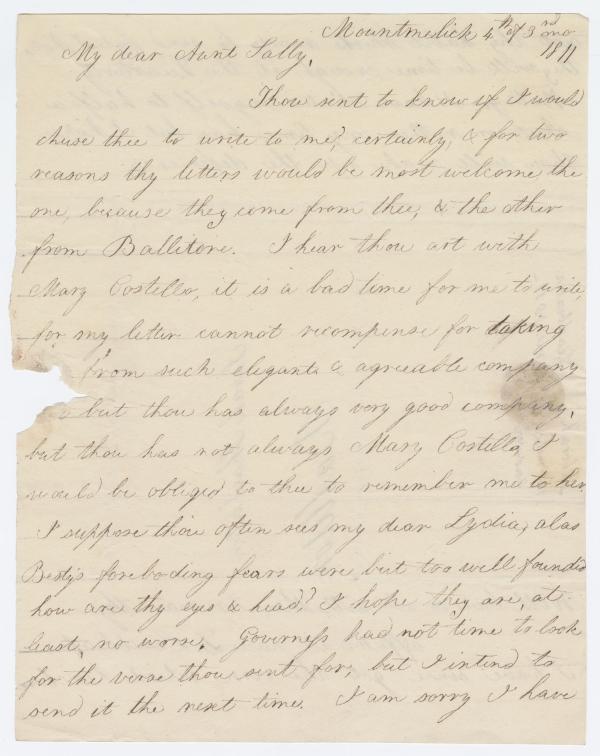 Mountmelick 4th of 3rd mo
1811
My dear Aunt Sally,
Thou sent to know if I would
chuse thee to write to me? certainly, & for two
reasons thy letters would be most welcome the
one, because they come from thee, & the other
from Ballitore. I hear thou art with
Mary Costello, it is a bad time for me to write,
for my letter cannot recompense for taking
from such elegant & agreeable company
but thou has always very good company,
but thou has not always Mary Costello I
would be obliged to thee to remember me to her.
I suppose thou often sees my dear Lydia, alas
Betsy's foreboding fears were but too well founded
how are thy eyes & head? I hope they are, at
least, no worse. Governess had not time to look
for the verse thou sent for, but I intend to
send it the next time. I am sorry I have